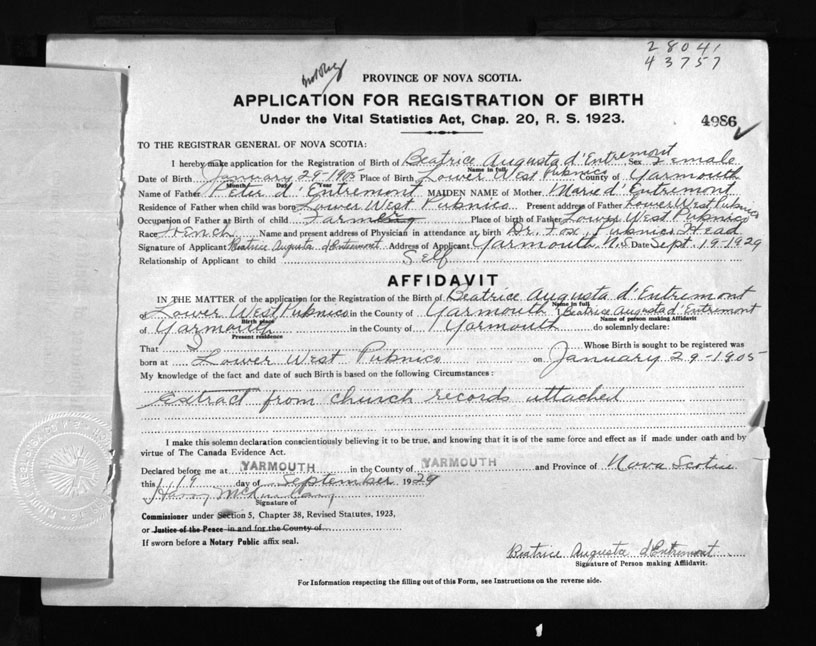 28041
43757
PROVINCE OF NOVA SCOTIA.
APPLICATION FOR REGISTRATION OF BIRTH
Under the Vital Statistics Act, Chap. 20, R. S. 1923.
4986
TO THE REGISTRAR GENERAL OF NOVA SCOTIA:
I hereby make application for the Registration of Birth of Beatrice Augusta d'Entremont Sex Female
Name in full
Date of Birth January 29-1905 Place of Birth Lower West Pubnico County of Yarmouth
Month Day Year
Name of Father Peter d'Entremont MAIDEN NAME of Mother Marie d'Entremont
Residence of Father when child was born Lower West Pubnico Present address of Father Lower West Pubnico
Occupation of Father at Birth of child Farmer Place of birth of Father Lower West Pubnico
Race French Name and present address of Physician in attendance at birth Dr. Fox, Pubnico Head
Signature of Applicant Beatrice Augusta d'Entremont Address of Applicant Yarmouth N.S Date Sept. 19-1929
Relationship of Applicant to child Self
AFFIDAVIT
IN THE MATTER of the application for the Registration of the Birth of Beatrice Augusta d'Entremont
Name in full
of Lower West Pubnico in the County of Yarmouth I Beatrice Augusta d'Entremont
Birth place Name of person making Affidavit
of Yarmouth in the County of Yarmouth do solemnly declare:
Present residence
That I Whose Birth is sought to be registered was
born at Lower West Pubnico on January 29-1905
My knowledge of the fact and date of such Birth is based on the following Circumstances:
Extract from church records attached
I make this solemn declaration conscientiously believing it to be true, and knowing that it is of the same force and effect as if made under oath and by
virtue of The Canada Evidence Act.
Declared before me at YARMOUTH in the County of YARMOUTH and Province of Nova Scotia
this 19 day of September 1929
Harry
Signature of
Commissioner under Section 5, Chapter 38, Revised Statutes, 1923,
or Justice of the Peace in and for the County of
If sworn before a Notary Public affix seal.
Beatrice Augusta d'Entremont
Signature of Person making Affidavit.
For Information respecting the filling out of this Form, see Instructions on the reverse side.